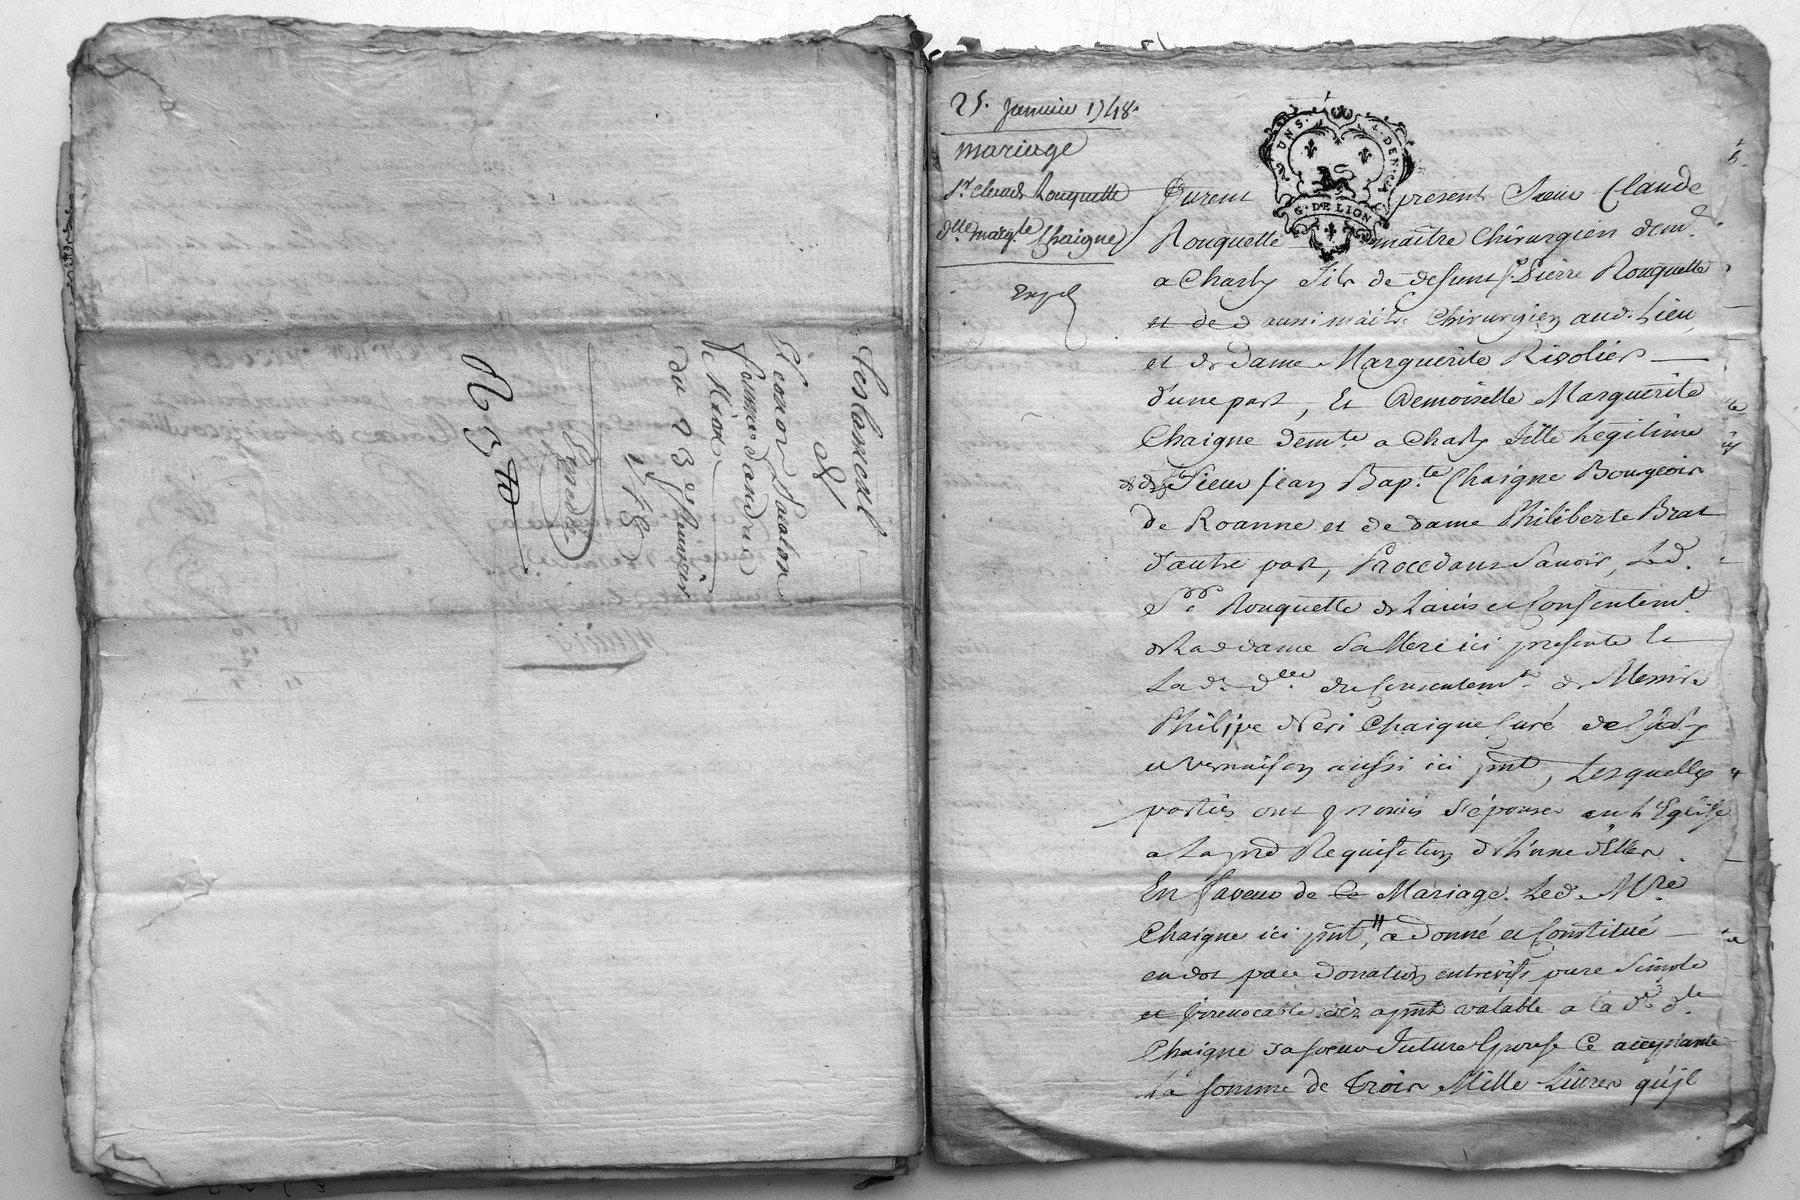 Testament
de
femme d'andré
Miéox
du 23e feuvrier
1748
25. Janvier 1748.
mariage
Sr. Claude Rouquette
dlle. margte. Chaigne
Exp.
UN S. 4. DEN.
G. DE LION
Furent present Sieur Claude
Rouquette maître Chirurgien demt.
a Charly Fils de defunt Sr. Pierre Rouquette
et de d aussi maitre Chirurgien aud. Lieu,
et de dame Marguerite Rivolier
d'une part, Et Demoiselle Marguerite
Chaigne demte. a Charly fille Legitime
de Sieur Jean Bapte. Chaigne Bourgeois
de Roanne et de dame Philiberte Brat
d'autre part, Procedans Savoir, Led.
Sr. Rouquette de Lavis et Consentemt.
de Lad. dame Sa Mere ici presente et
Lad. dlle. du Consentemt. de Messire
Philipe Neri Chaigne Curé de Charly
et Vernaison aussi ici pnt, Lesquelles
parties ont promis s'épouser en L'Eglise
a La pre. Requisition de L'une d'Elles.
En faveur de Ce Mariage. Led. Mre.
Chaigne ici pnt, a donné et Constitué
en dot par donation entrevifs pure Simple
et irrevocable dèz apnt valable a la de. dlle.
Chaigne sa soeur future Epouse Ce acceptante
La somme de Trois Mille Livres qu'il